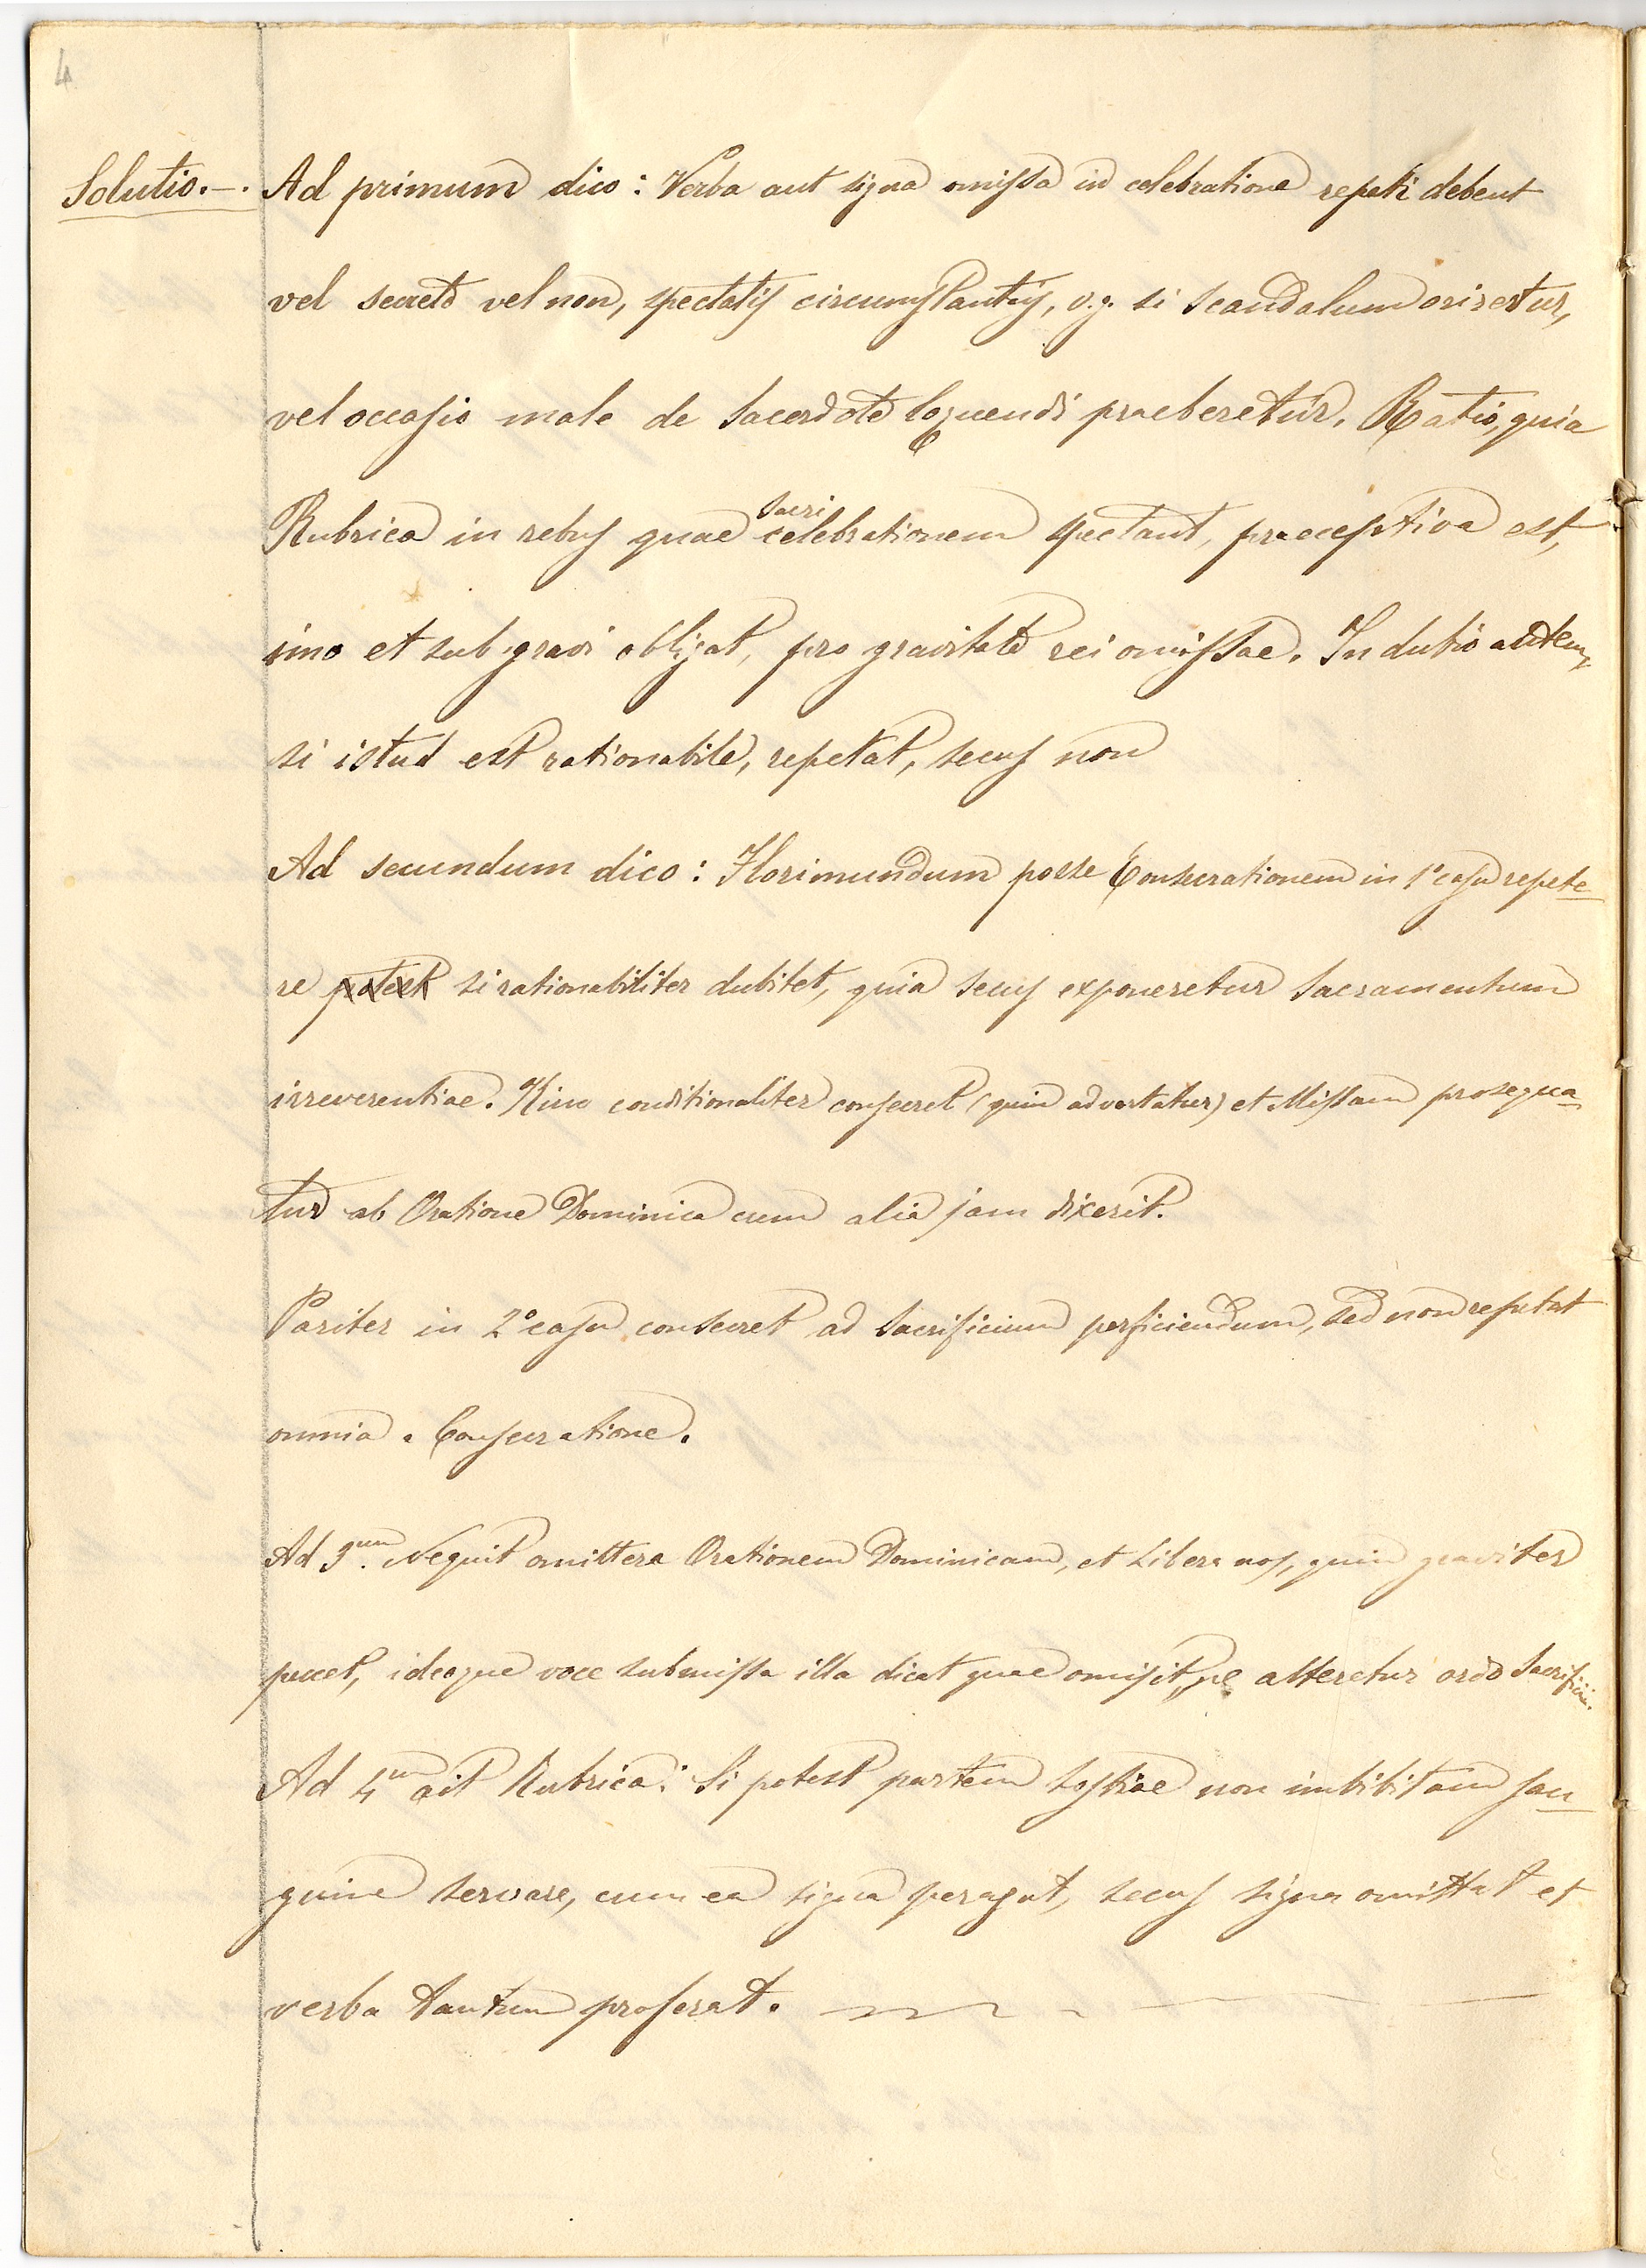 4
Solutio.—. Ad primum dico: Verba aut signa omissa in celebratione repeti debent
vel secreto vel non, spectatis circumstantiis, v.g. si scandalum oriretur,
vel occasio male de Sacerdote loquendi praeberetur. Ratio, quia
sacri
Rubrica in rebus quae celebrationem spectant, praeceptiva est,
imo et sub gravi obligat, pro gravitate rei omissae. In dubio autem,
si istud est rationabile, repetat, secus non
Ad secundum dico: Florimundum posse Consecrationem in 1º casu repete-
re potest si rationabiliter dubitet, quia secus exponeretur Sacramentum
irreverentiae. Hinc conditionaliter consecret (quin advertatur) et Missam prosequa-
tur ab Oratione Dominica cum alia jam dixerit.
Pariter in 2º casu consecret ad Sacrificium perficiendum, sed non repetat
omnia a Consecratione.
Ad 3um. Nequit omittere Orationem Dominicam, et Libera nos, quin graviter
peccet, ideoque voce submissa illa dicat quae omisit, ne alteretur ordo Sacrificii.
Ad 4um ait Rubrica: Si potest partem hostiae non imbibitam san-
guine servare, cum ea signa peragat, secus signa omittat et
verba tantum proferat.